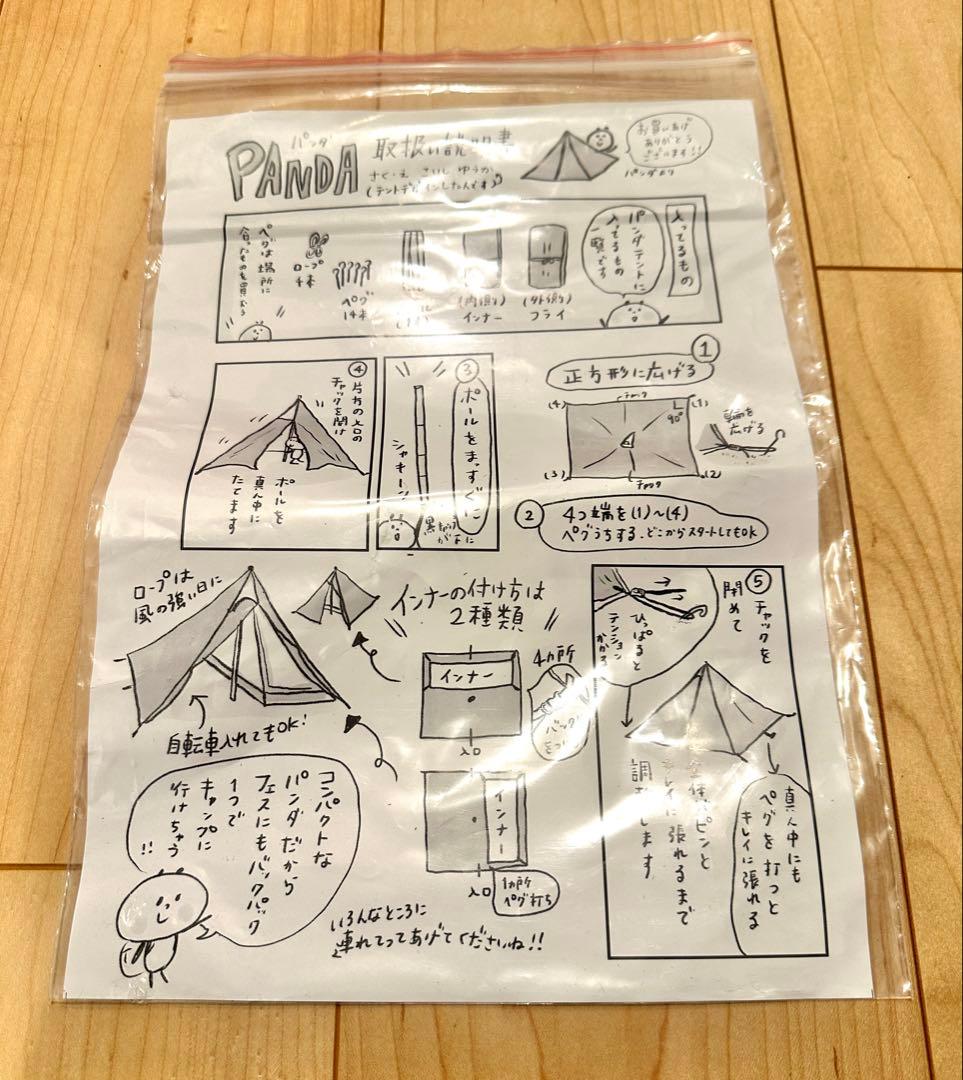 パンダ
PANDA
取扱い説明書
さく・え さいし ゆうか
(テントデザインした人です)
お買いあげ
ありがとう
ございます!!
パンダより
入ってるもの
パンダテントに
入ってるもの
一覧です
(外側)
フライ
(内側)
インナー
ペグ
14本
ロープ
4本
ペグは場所に
合ったものを買おう
①
正方形に広げる
チャック
(4)
(1)
90°
(3)
(2)
チャック
広げる
②
4つ端を(1)〜(4)
ペグうちする、どこからスタートしてもOK
③
ポールをまっすぐに
シャキーン
④
片方の入口の
チャックを開け
ポールを
真ん中に
たてます
ロープは
風の強い日に
自転車入れてもOK!
インナーの付け方は
2種類
インナー
入口
4カ所
インナー
入口
1カ所
ペグ打ち
⑤
チャックを
閉めて
ひっぱると
テンション
かかる
真ん中にも
ペグを打つと
キレイに張れる
ピンと
キレイに張れるまで
調
します
コンパクトな
パンダだから
フェスにもバックパック
1つで
キャンプに
行けちゃう
!!
いろんなところに
連れてってあげてくださいね!!